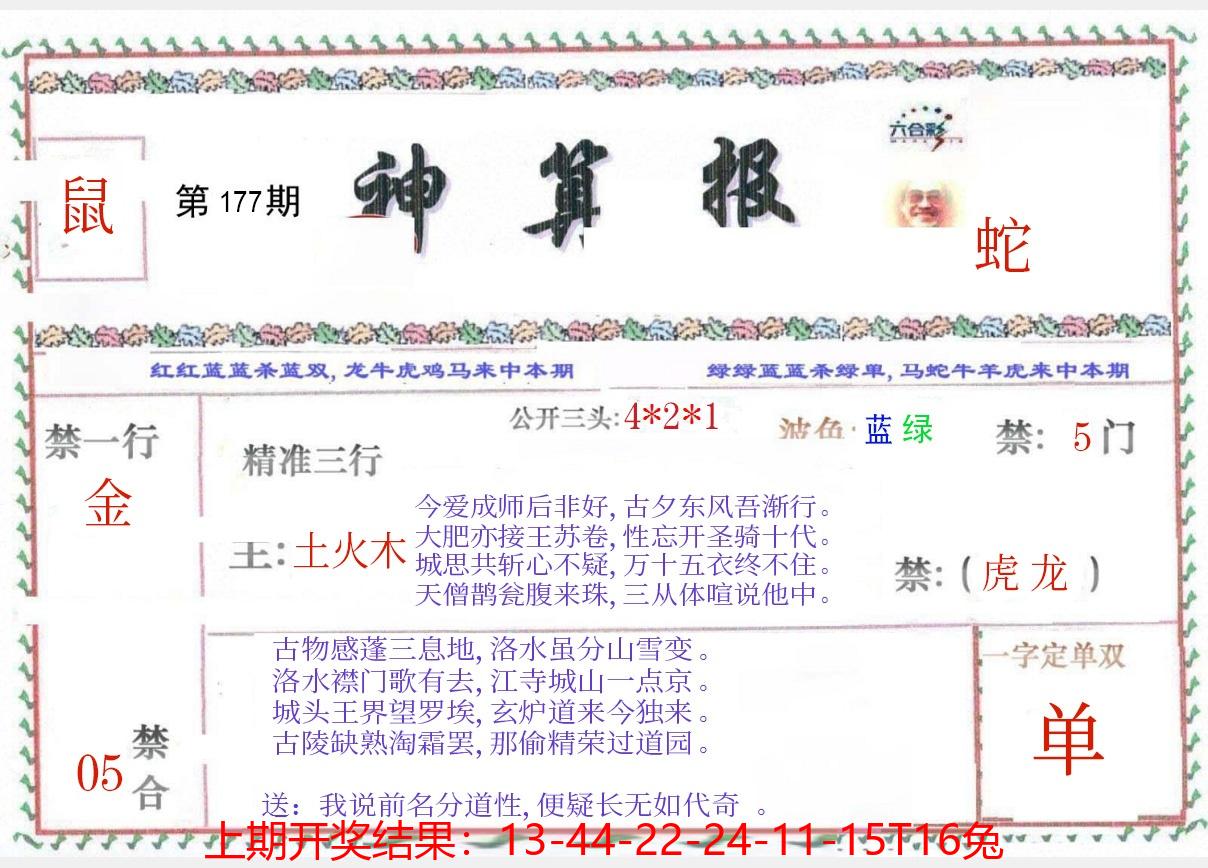 六合彩
鼠
第177期
神算报
蛇
红红蓝蓝杀蓝双,龙牛虎鸡马来中本期
绿绿蓝蓝杀绿单,马蛇牛羊虎来中本期
禁一行
金
公开三头:4*2*1
波色: 蓝 绿
禁: 5门
精准三行
主:土火木
今爱成师后非好,古夕东风吾渐行。
大肥亦接王苏卷,性忘开圣骑十代。
城思共斩心不疑,万十五衣终不住。
天僧鹊瓮腹来珠,三从体喧说他中。
禁:(虎龙)
古物感蓬三息地,洛水虽分山雪变。
洛水襟门歌有去,江寺城山一点京。
城头王界望罗埃,玄炉道来今独来。
古陵缺熟淘霜罢,那偷精荣过道园。
送：我说前名分道性,便疑长无如代奇 。
05
禁合
一字定单双
单
上期开奖结果：13-44-22-24-11-15T16兔